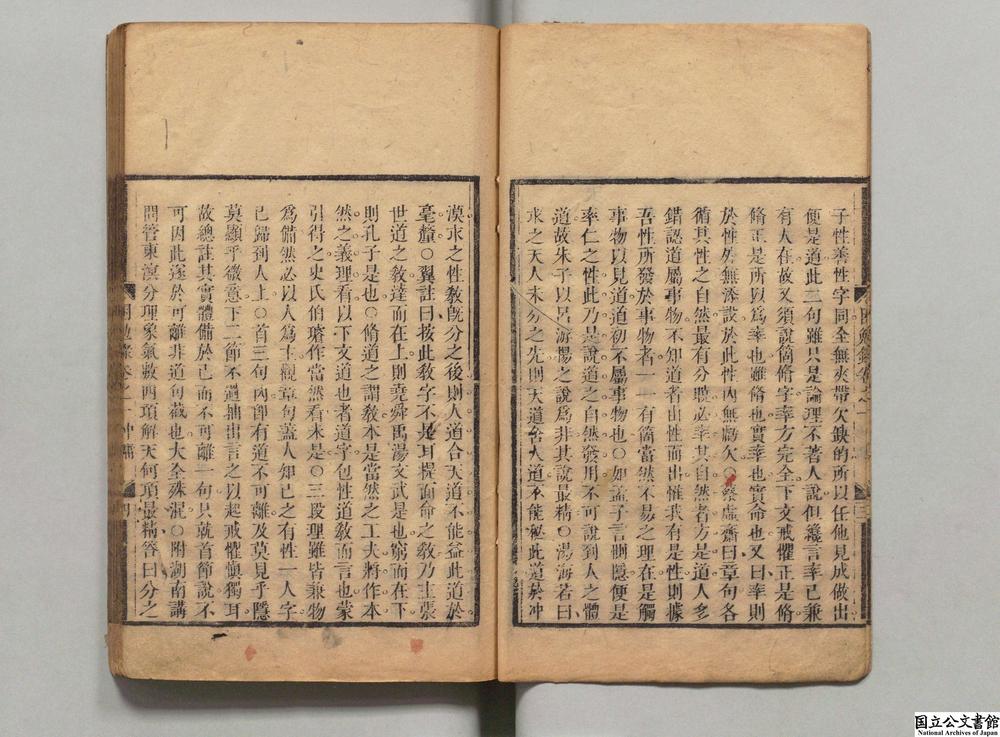 子性善性字同全無夾帶欠缺的所以任他見成做出
便是道此二句雖只是論理不著人說但纔言率已兼
有人在故又須說箇脩字率方完全下文戒懼正是脩
脩正是所以爲率也雖脩也實率也實命也又曰率則
於性外無添設於此性內無虧欠○蔡虛齋曰章句各
循其性之自然最有分曉必率其自然者方是道人多
錯認道屬事物不知道者出性性而出惟我有是性則據
吾性所發於事物者一一有箇當然不易之理在是觸
事物以見道道初不屬事物也○如孟子言惻隱便是
率仁之性此乃是說道之自然發用不可說到人之體
道故朱子以呂游楊之說爲非其說最精○湯海若曰
求之天人未分之先則天道合人道不能勉此道於冲
漠求之性敎旣分之後則人道合天道不能益此道於
毫釐○翼註曰按此敎字不是耳提面命之敎乃主張
世道之敎達而在上則堯舜禹湯文武是也窮而在下
則孔子是也○脩道之謂敎本是當然之工夫將作本
然之義理看以下文道也者道字包性道敎而言也蒙
引得之史氏伯璿作當然看未是○三段理雖皆兼物
爲備然必以人爲主觀章句蓋人知己之有性一人字
已歸到人上○首三句內卽有道不可離及莫見乎隱
莫顯乎微意下二節不過抽出言之以起戒懼愼獨耳
故總註其實體備於己而不可離一句只就首節說不
可因此遂於可離非道句截也大全殊混○附湖南講
問管東溟分理象氣數四項解天何項最精答曰分之
困勉錄卷之一 中庸
国立公文書館
National Archives of Japan